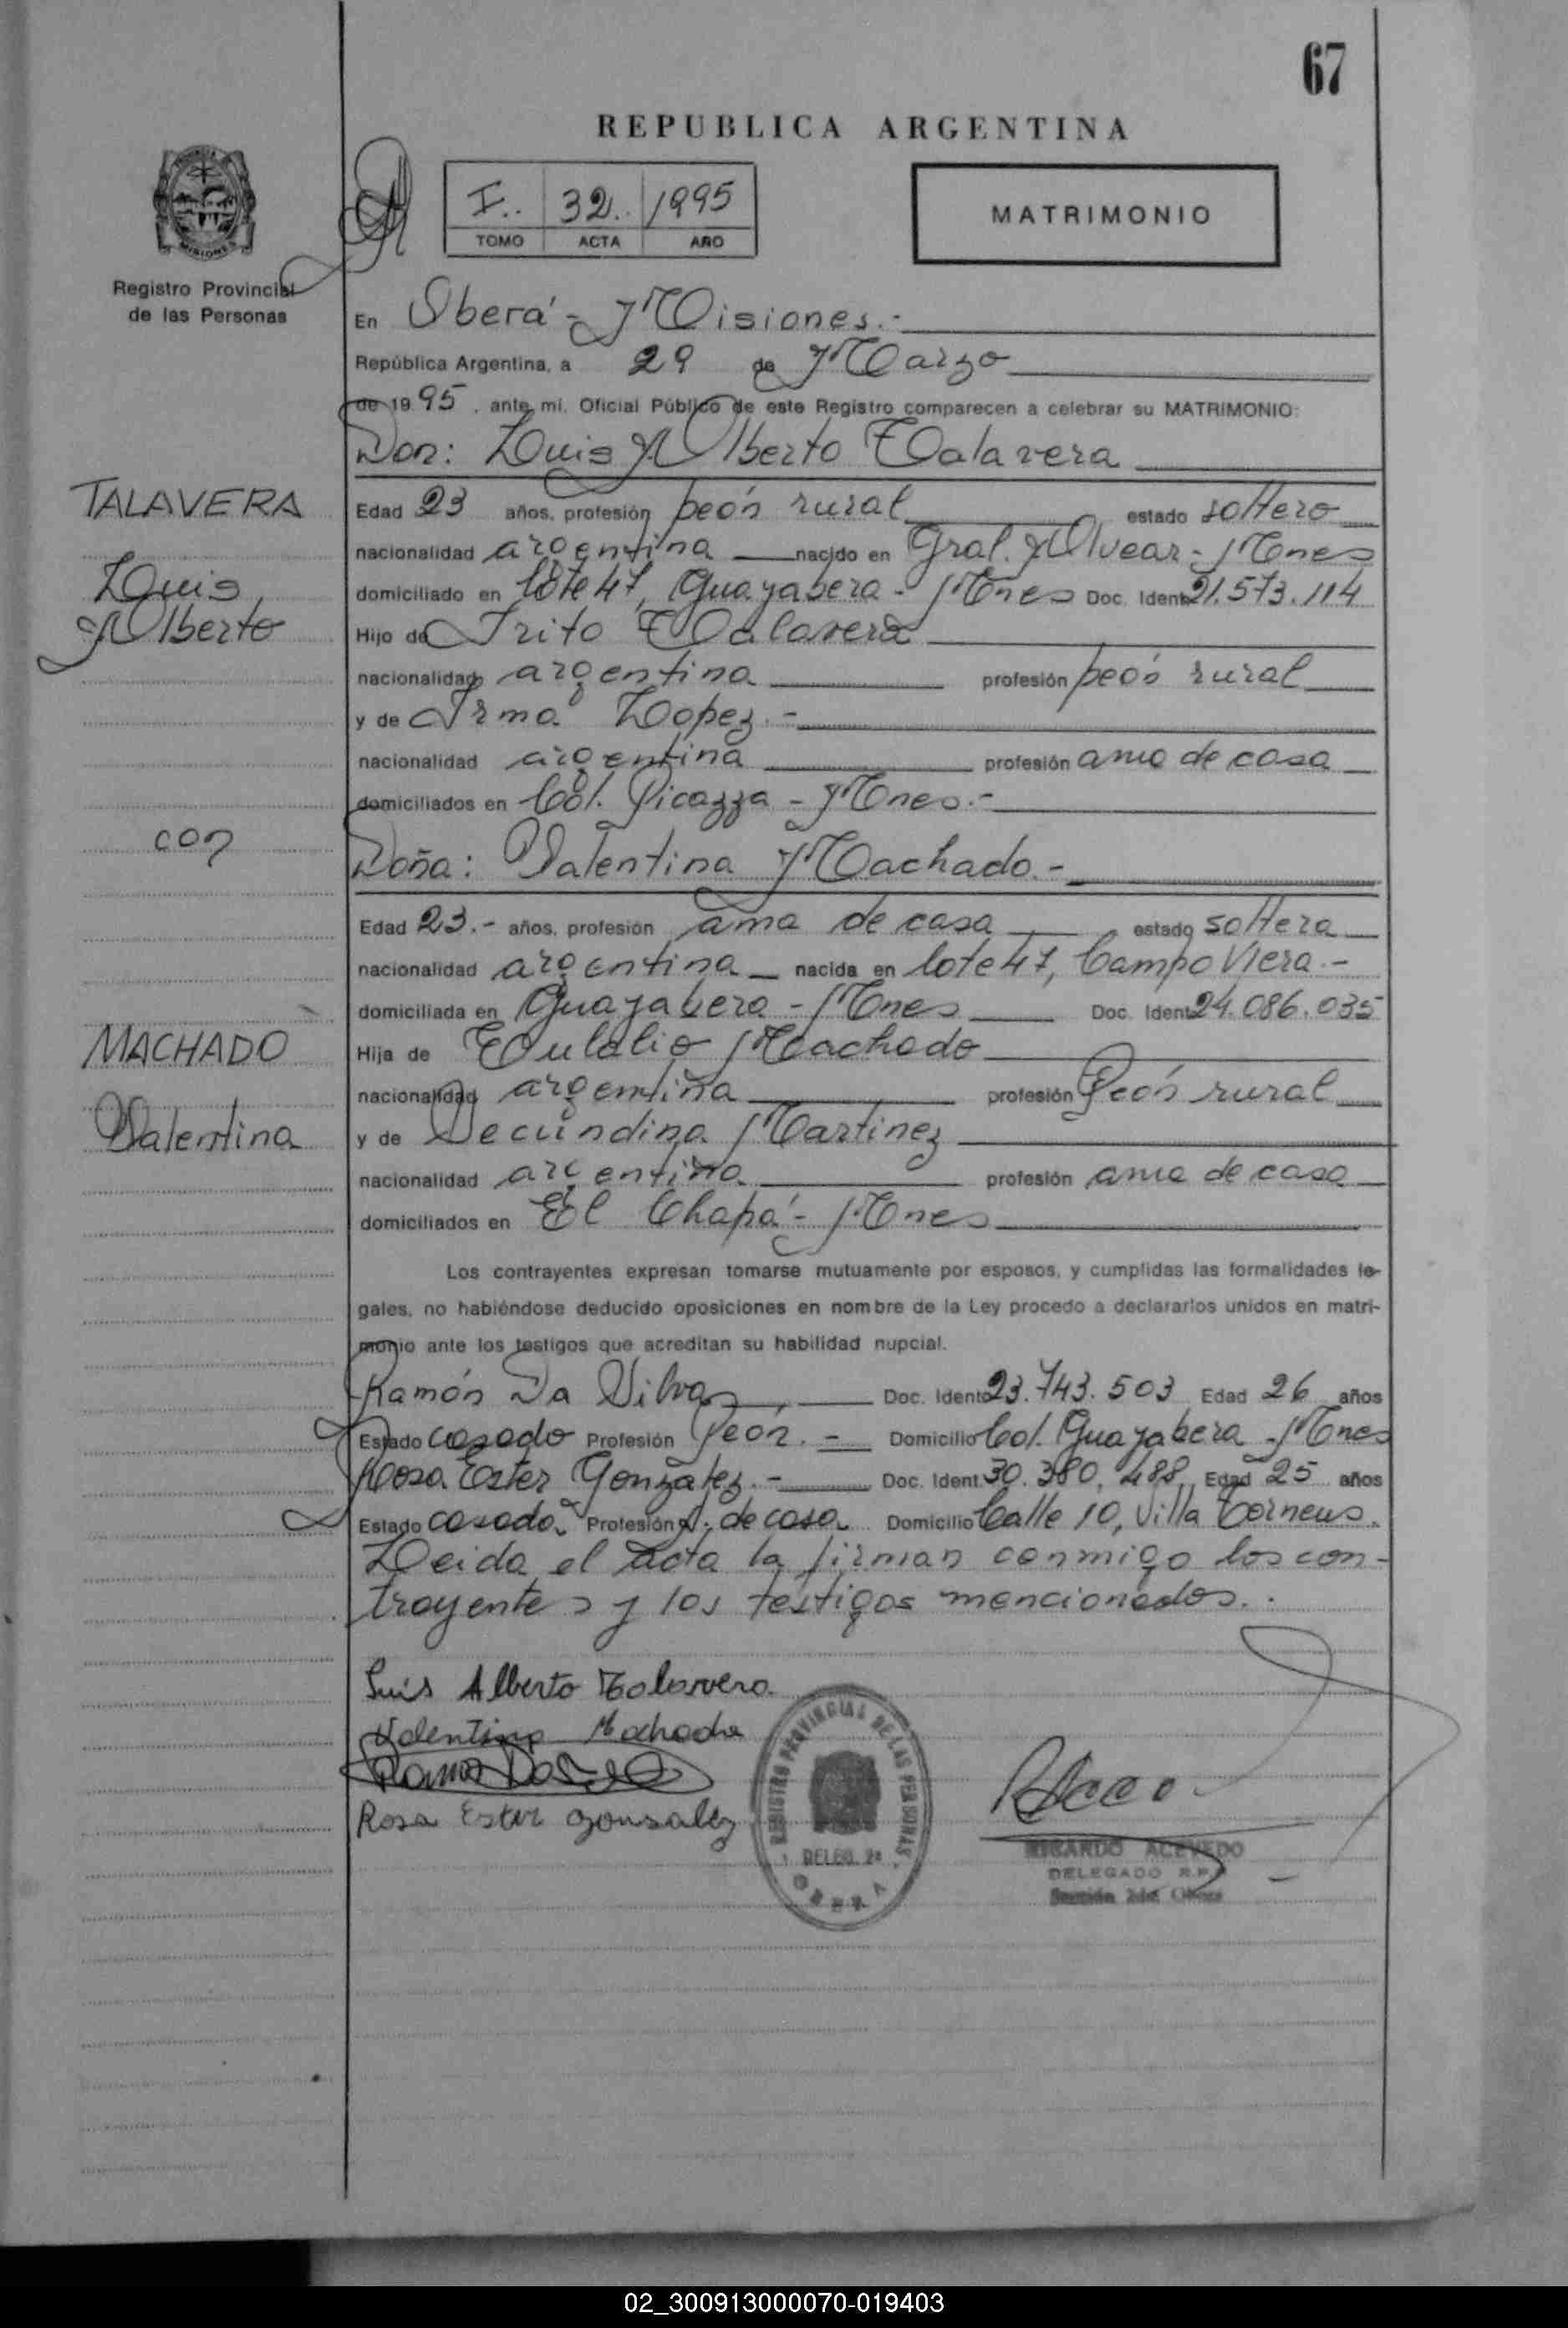 67
REPUBLICA ARGENTINA
I.. 32. 1995
TOMO ACTA AÑO
MATRIMONIO
MISIONES
Registro Provincial
de las Personas
En Oberá - Misiones.-
República Argentina, a 29 de Marzo
de 1995, ante mi, Oficial Público de este Registro comparecen a celebrar su MATRIMONIO:
Don: Luis Alberto Talavera
TALAVERA
Luis
Alberto
Edad 23 años, profesión peón rural estado soltero
nacionalidad argentina nacido en Gral. Alvear - Mnes
domiciliado en lote 47, Guayabera - Mnes Doc. Ident. 21.573.114
Hijo de Irito Talavera
nacionalidad argentina profesión peón rural
y de Irma Lopez.-
nacionalidad argentina profesión ama de casa
domiciliados en Col. Picazza - Mnes.-
con
Doña: Valentina Machado.-
Edad 23.- años, profesión ama de casa estado soltera
nacionalidad argentina nacida en lote 47, Campo Viera.-
domiciliada en Guayabera - Mnes Doc. Ident. 24.086.035
MACHADO
Valentina
Hija de Eulalio Machado
nacionalidad argentina profesión Peón rural
y de Secundina Martinez
nacionalidad argentina profesión ama de casa
domiciliados en El Chapá - Mnes
Los contrayentes expresan tomarse mutuamente por esposos, y cumplidas las formalidades le-
gales, no habiéndose deducido oposiciones en nombre de la Ley procedo a declararlos unidos en matri-
monio ante los testigos que acreditan su habilidad nupcial.
Ramón Da Silva Doc. Ident. 23.743.503 Edad 26 años
Estado casado Profesión Peón.- Domicilio Col. Guayabera - Mnes
Rosa Ester Gonzalez.- Doc. Ident. 30.380.488 Edad 25 años
Estado casada Profesión A. de casa Domicilio Calle 10, Villa
Leida el acta la firman conmigo los con-
trayentes y los testigos mencionados..
Luis Alberto Talavera
Valentina Machado
Rosa Ester Gonsalez
REGISTRO PROVINCIAL DE LAS PERSONAS
DELEG. 2ª
OBERA
RICARDO ACEVEDO
DELEGADO R.P.P.
02_300913000070-019403